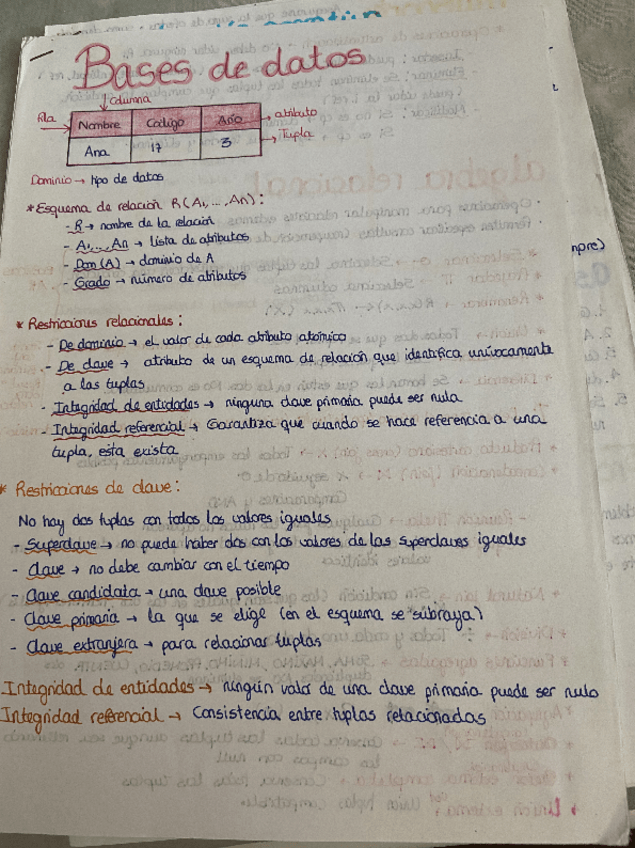 Bases de datos
columna
fila
Nombre Código Año
atributo
Ana 17 3
Tupla
Dominio → tipo de datos
* Esquema de relación R(A₁,...,An):
- R → nombre de la relación
- A₁,...,An → lista de atributos
- Dom(A) → dominio de A
- Grado → número de atributos
* Restricciones relacionales:
- De dominio → el valor de cada atributo atómico
- De clave → atributo de un esquema de relación que identifica unívocamente
a las tuplas
- Integridad de entidades → ninguna clave primaria puede ser nula
- Integridad referencial → Garantiza que cuando se hace referencia a una
tupla, esta exista
* Restricciones de clave:
No hay dos tuplas con todos los valores iguales
- Superclave → no puede haber dos con los valores de las superclaves iguales
- Clave → no debe cambiar con el tiempo
- Clave candidata → una clave posible
- Clave primaria → la que se elige (en el esquema se subraya)
- Clave extranjera → para relacionar tuplas
Integridad de entidades → ningún valor de una clave primaria puede ser nulo
Integridad referencial → Consistencia entre tuplas relacionadas